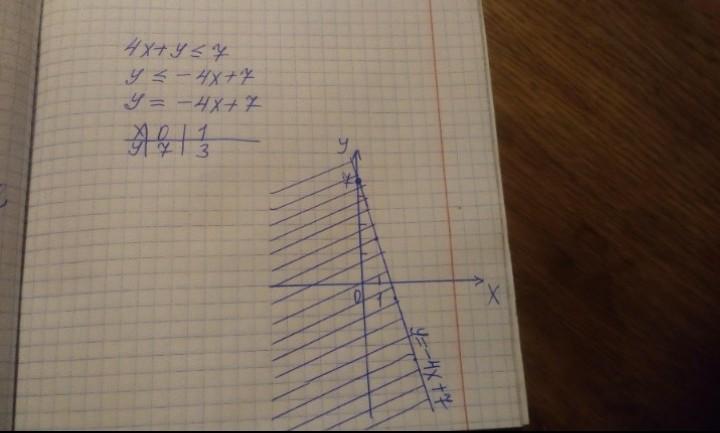 4x+y≤7
y≤-4x+7
y=-4x+7
x 0 1
y 7 3
y
7
0 1 x
y=-4x+7